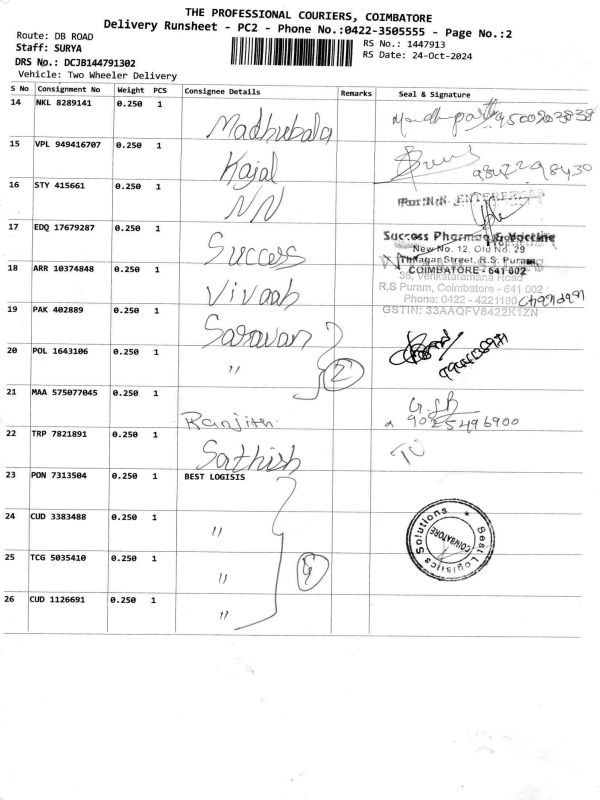 THE PROFESSIONAL COURIERS, COIMBATORE
Delivery Runsheet - PC2 - Phone No.:0422-3505555 - Page No.:2
Route: DB ROAD
RS No.: 1447913
Staff: SURYA
RS Date: 24-Oct-2024
DRS No.: DCJB144791302
Vehicle: Two Wheeler Delivery
S No Consignment No Weight PCS Consignee Details Remarks Seal & Signature
14 NKL 8289141 0.250 1 Madhubala
15 VPL 949416707 0.250 1 Kajal
16 STY 415661 0.250 1 NN
For N.N. ENTERPRICES
17 EDQ 17679287 0.250 1 Success
Success Pharma & Vaccine
New No. 12, Old No. 29
Thiagar Street, R.S. Puram,
COIMBATORE - 641 002
18 ARR 10374848 0.250 1 Vivaah
36, Venkataramana Road
R.S Puram, Coimbatore - 641 002
Phone: 0422 - 4221180
GSTIN: 33AAQFV8422K1ZN
19 PAK 402889 0.250 1 Saravan
20 POL 1643106 0.250 1 " 2
21 MAA 575077045 0.250 1 Ranjith 9025496900
22 TRP 7821891 0.250 1 Sathish
23 PON 7313504 0.250 1 BEST LOGISIS
24 CUD 3383488 0.250 1 "
Best Logistics Solutions
COIMBATORE
25 TCG 5035410 0.250 1 " 4
26 CUD 1126691 0.250 1 "